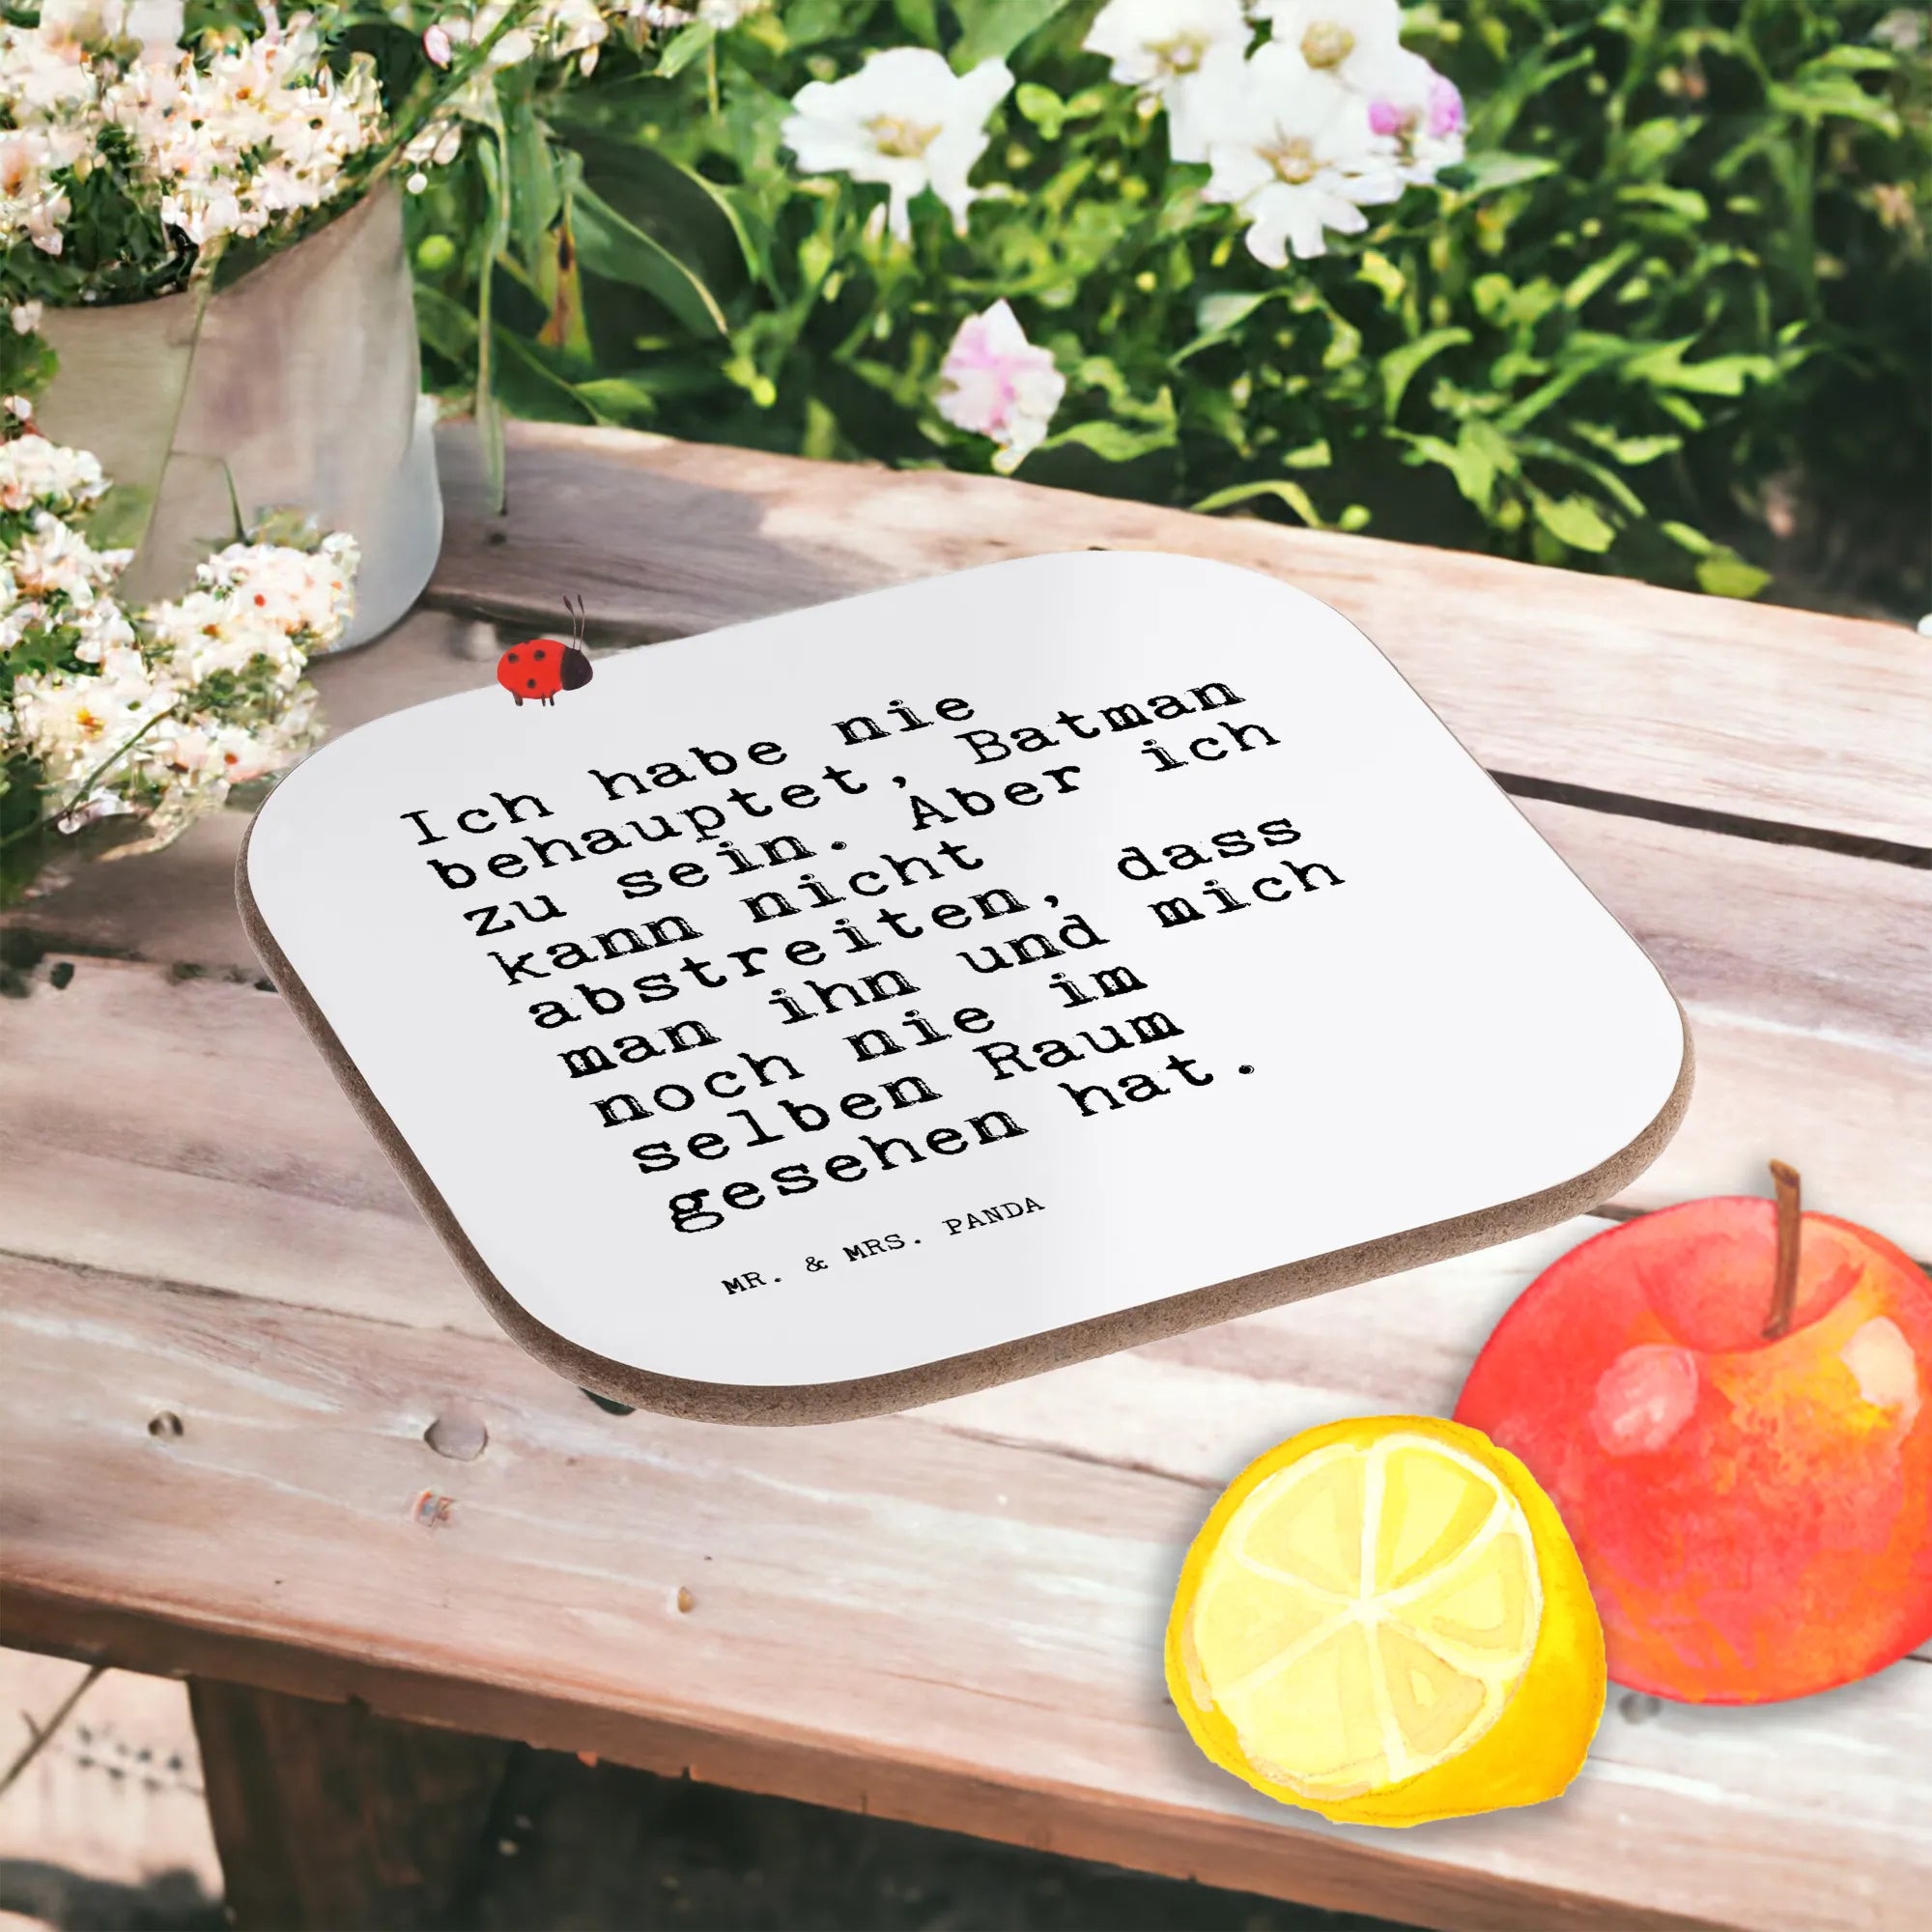 Ich habe nie
behauptet, Batman
zu sein. Aber ich
kann nicht
abstreiten, dass
man ihn und mich
noch nie im
selben Raum
gesehen hat.
MR. & MRS. PANDA